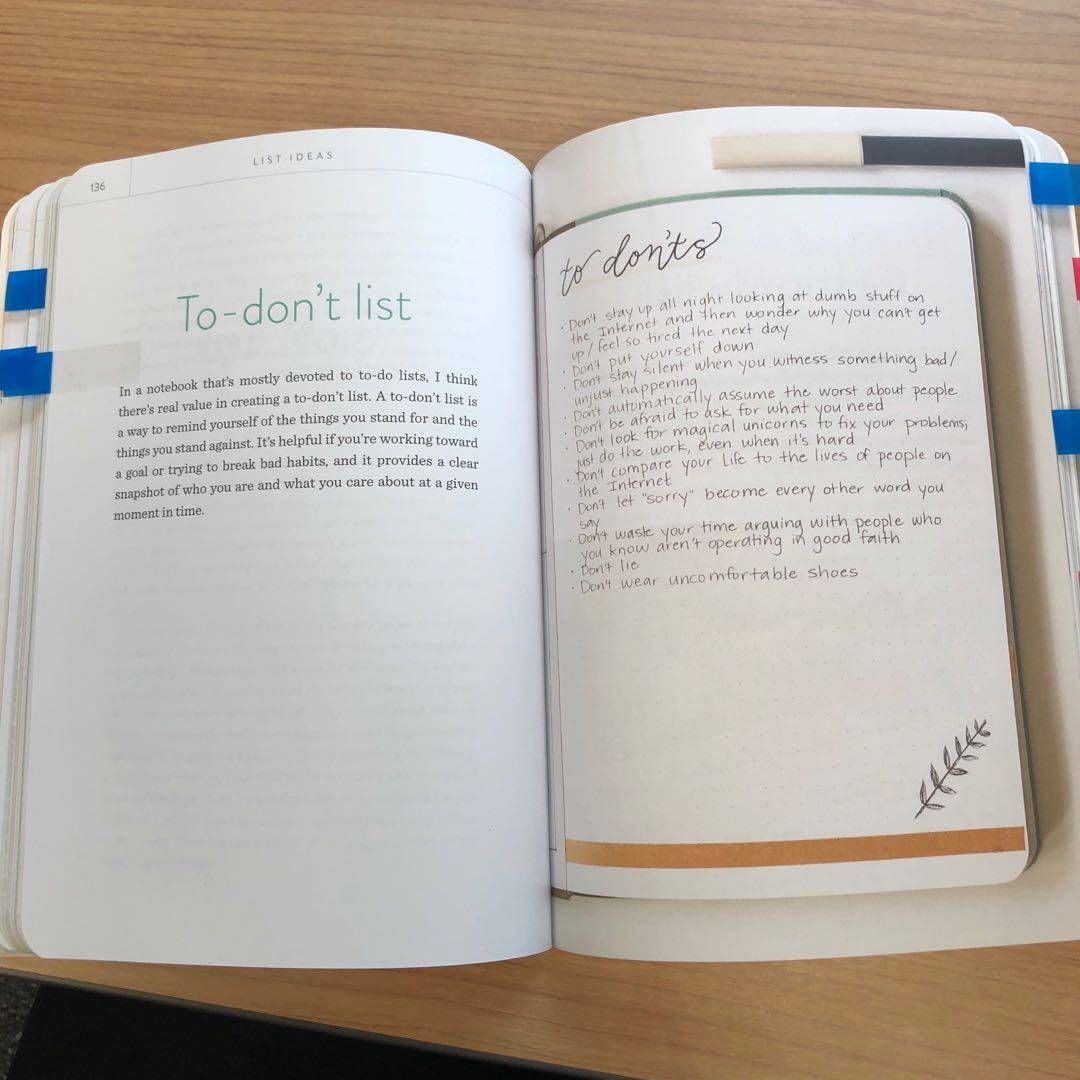 LIST IDEAS
136
To-don't list
In a notebook that's mostly devoted to to-do lists, I think
there's real value in creating a to-don't list. A to-don't list is
a way to remind yourself of the things you stand for and the
things you stand against. It's helpful if you're working toward
a goal or trying to break bad habits, and it provides a clear
snapshot of who you are and what you care about at a given
moment in time.
to don'ts
· Don't stay up all night looking at dumb stuff on
the Internet and then wonder why you can't get
up/feel so tired the next day
· Don't put yourself down
· Don't stay silent when you witness something bad/
unjust happening
· Don't automatically assume the worst about people
· Don't be afraid to ask for what you need
· Don't look for magical unicorns to fix your problems;
just do the work, even when it's hard
· Don't compare your life to the lives of people on
the Internet
· Don't let "sorry" become every other word you
say
· Don't waste your time arguing with people who
you know aren't operating in good faith
· Don't lie
· Don't wear uncomfortable shoes